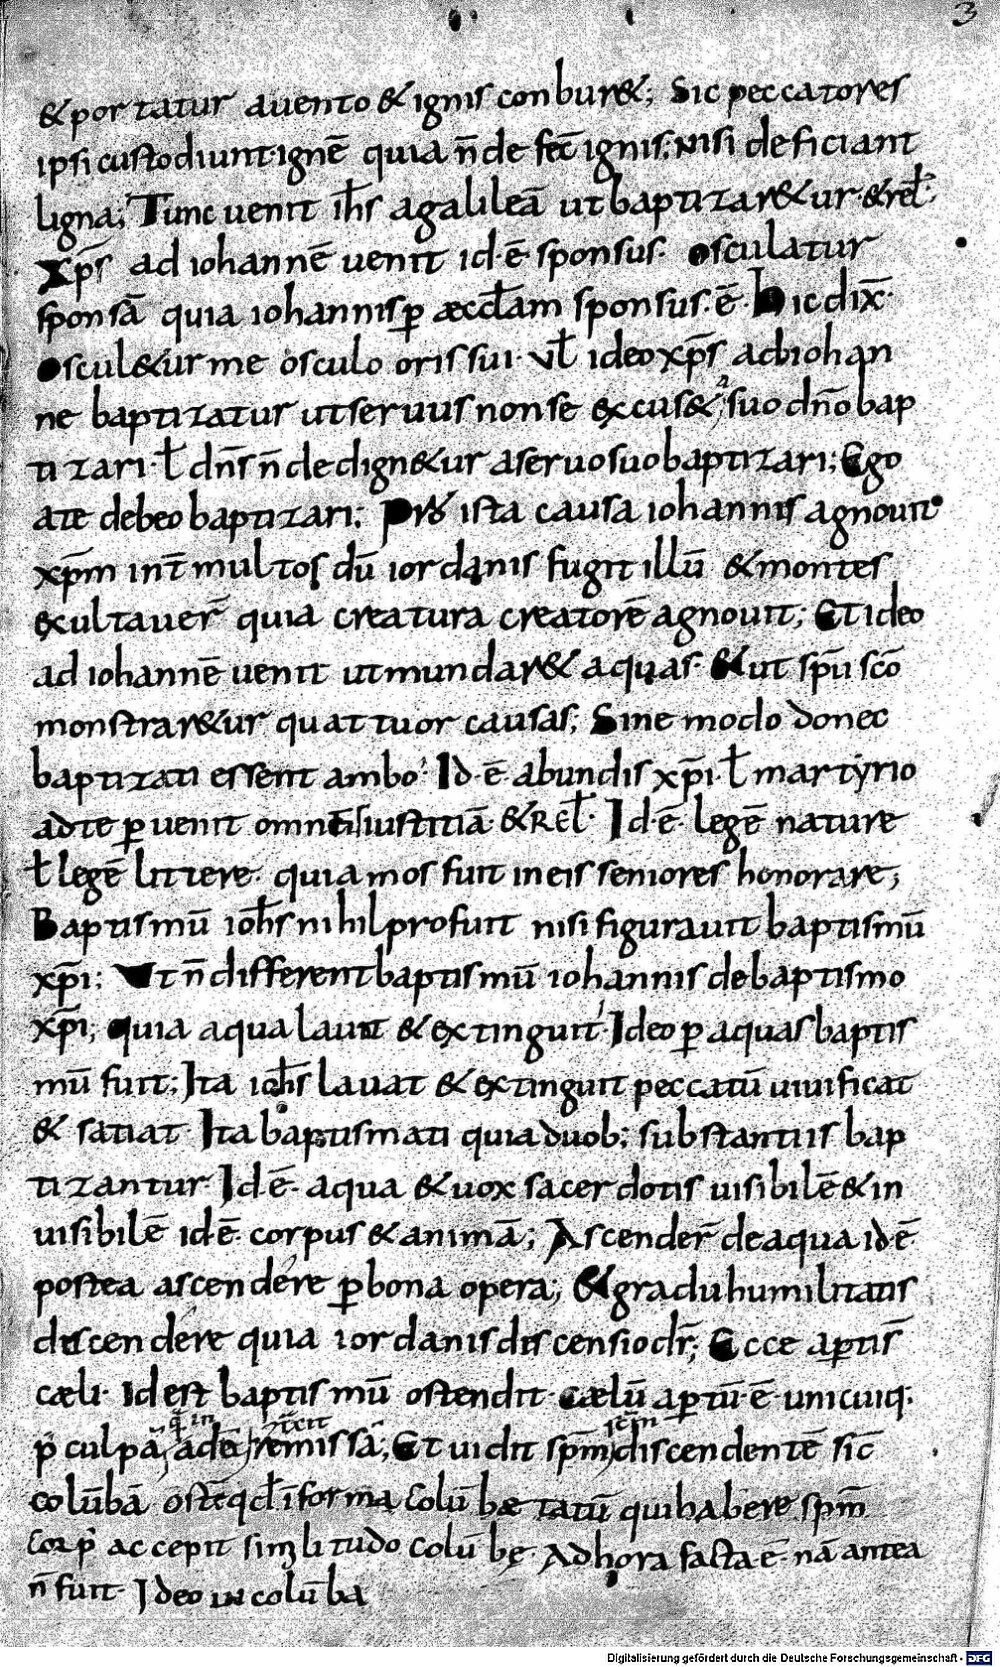 3
&portatur auento & ignis conbur&; Sic peccatores
ipsi custodiunt ignē quia n̄ de fec̄ ignis; Nisi deficiant
ligna; Tunc uenit ih̄s agalileā ut baptizar&ur · & rel̄·
xp̄s ad iohannē uenit id·ē· sponsus· osculatur
sponsā quia iohannis p̱ æccl̄am sponsus·ē· Hic dix̄·
Oscul&ur me osculo oris sui· Vl̄ ideo xp̄s ad iohan
ne baptizatur ut seruus non se excus& suo dn̄o bap
tizari· l̄ dn̄s n̄ dedign&ur aseruo suo baptizari; Ego
ate debeo baptizari; Pro ista causa iohannis agnouit
xp̄m int̄ multos dū iordanis fugit illū & montes
exultauer̄ quia creatura creatorē agnouit; Et ideo
ad iohannē uenit ut mundar& aquas· & ut sp̄u sc̄o
monstrar&ur quattuor causas; Sine modo donec
baptizati essent ambo· Id·ē· abundis xp̄i· l̄ martyrio
ad te p̱uenit omnē iustitiā · & rel̄· Id·ē· legē nature
l̄ legē littere· quia mos fuit in eis seniores honorare;
Baptismū ioh̄s nihil profuit nisi figurauit baptismū
xp̄i; Ut n̄ different baptismū iohannis de baptismo
xp̄i; quia aqua lauit & extinguit· Ideo p̱ aquas baptis
mū fuit; Ita ioh̄s lauat & extinguit peccatū uiuificat
& satiat· Ita baptismati quia duob; substantiis bap
tizantur Id·ē· aqua & uox sacerdotis uisibilē & in
uisibilē id·ē· corpus & animā; Ascender̄ de aqua id·ē·
postea ascendere p̱ bona opera; & gradu humilitatis
discendere quia iordanis discensio dr̄; Ecce ap̱tis̄
cæli· Id est baptismū ostendit· cælū ap̱tū·ē· unicuiq·
p̱ culpā adē remissā; Et uidit sp̄m discendentē sic̄
colūbā forma colūbæ qui habere sp̄m
corp̱ accepit similitudo colūbę Ad hora facta ē· nā antea
n̄ fuit· Ideo in colūba
Digitalisierung gefördert durch die Deutsche Forschungsgemeinschaft - DFG